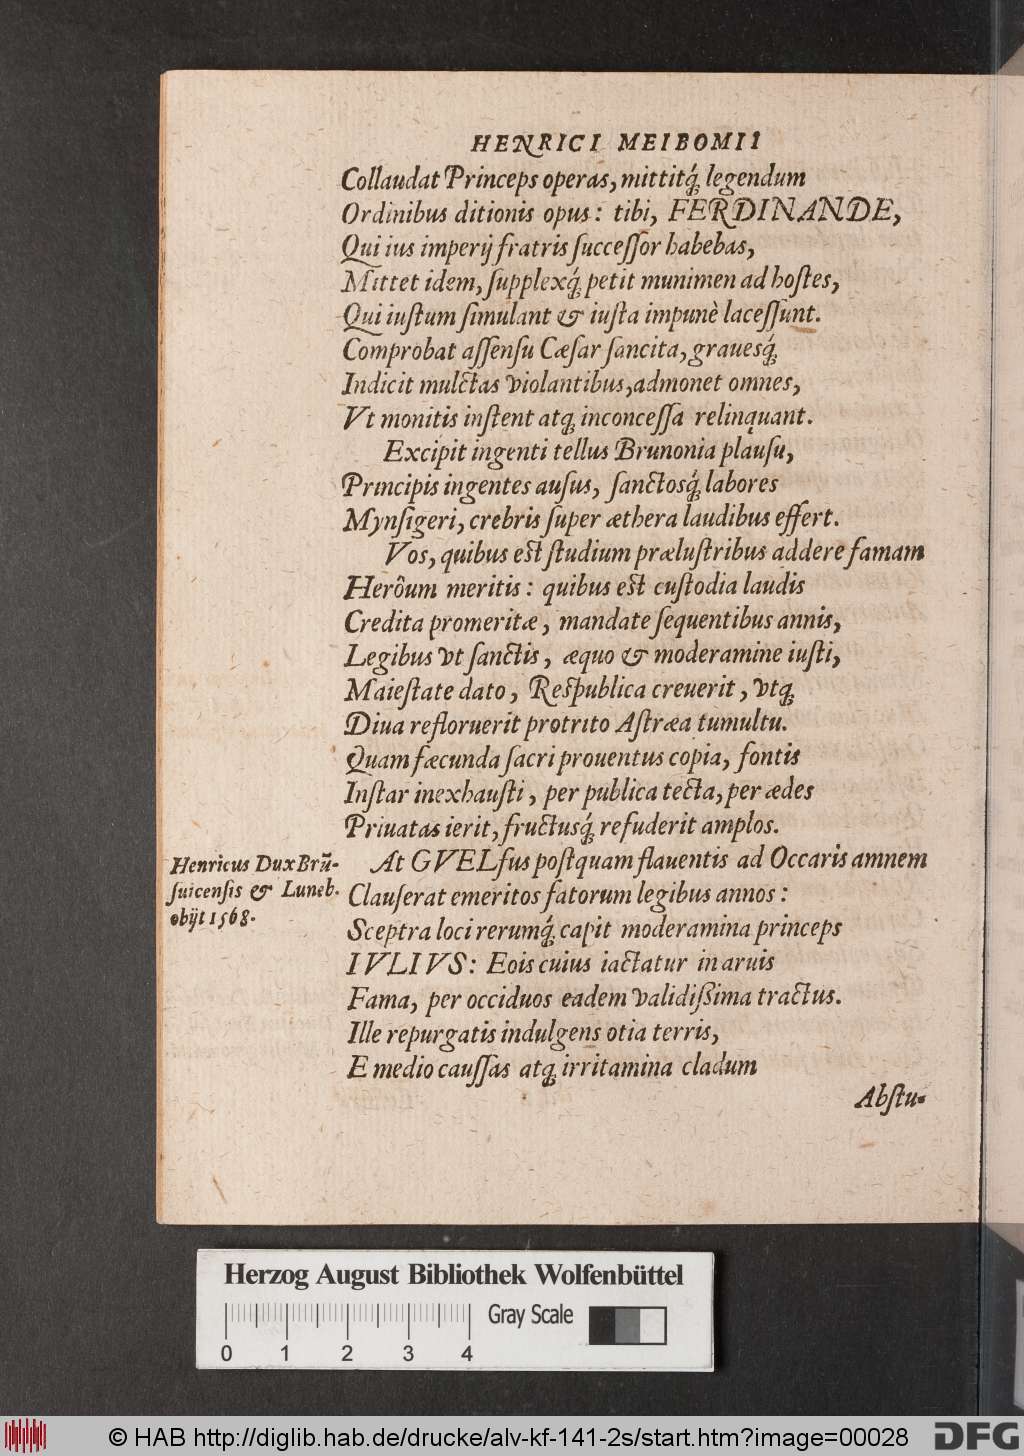 HENRICI MEIBOMII
Collaudat Princeps operas, mittitq́; legendum
Ordinibus ditionis opus: tibi, FERDINANDE,
Qui ius imperij fratris ſucceſſor habebas,
Mittet idem, ſupplexq́; petit munimen ad hoſtes,
Qui iuſtum ſimulant & iuſta impunè laceſſunt.
Comprobat aſſenſu Cæſar ſancita, grauesq́;
Indicit mulctas violantibus, admonet omnes,
Vt monitis inſtent atq; inconceſſa relinquant.
Excipit ingenti tellus Brunonia plauſu,
Principis ingentes auſus, ſanctosq́; labores
Mynſigeri, crebris ſuper æthera laudibus effert.
Vos, quibus eſt ſtudium præluſtribus addere famam
Herôum meritis: quibus eſt cuſtodia laudis
Credita promeritæ, mandate ſequentibus annis,
Legibus vt ſanctis, æquo & moderamine iuſti,
Maieſtate dato, Reſpublica creuerit, vtq;
Diua refloruerit protrito Aſtræa tumultu.
Quam fæcunda ſacri prouentus copia, fontis
Inſtar inexhauſti, per publica tecta, per ædes
Priuatas ierit, fructusq́; refuderit amplos.
At GVELfus poſtquam flauentis ad Occaris amnem
Clauſerat emeritos fatorum legibus annos:
Sceptra loci rerumq́; capit moderamina princeps
IVLIVS: Eois cuius iactatur in aruis
Fama, per occiduos eadem validißima tractus.
Ille repurgatis indulgens otia terris,
E medio cauſſas atq; irritamina cladum
Abſtu-
Henricus Dux Brũ-
ſuicenſis & Luneb.
obijt 1568.
Herzog August Bibliothek Wolfenbüttel
Gray Scale
0 1 2 3 4
© HAB http://diglib.hab.de/drucke/alv-kf-141-2s/start.htm?image=00028
DFG